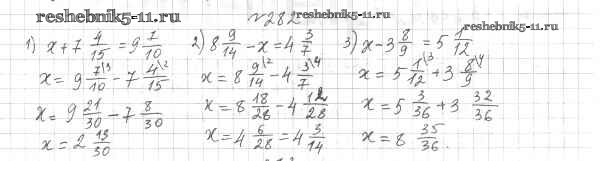 reshebnik5-11.ru
№282 reshebnik5-11.ru
reshebnik5-11.ru
1) x + 7 4/15 = 9 7/10
x = 9 7\3/10 - 7 4\2/15
x = 9 21/30 - 7 8/30
x = 2 13/30
2) 8 9/14 - x = 4 3/7
x = 8 9\2/14 - 4 3\4/7
x = 8 18/28 - 4 12/28
x = 4 6/28 = 4 3/14
3) x - 3 8/9 = 5 1/12
x = 5 1\3/12 + 3 8\4/9
x = 5 3/36 + 3 32/36
x = 8 35/36.